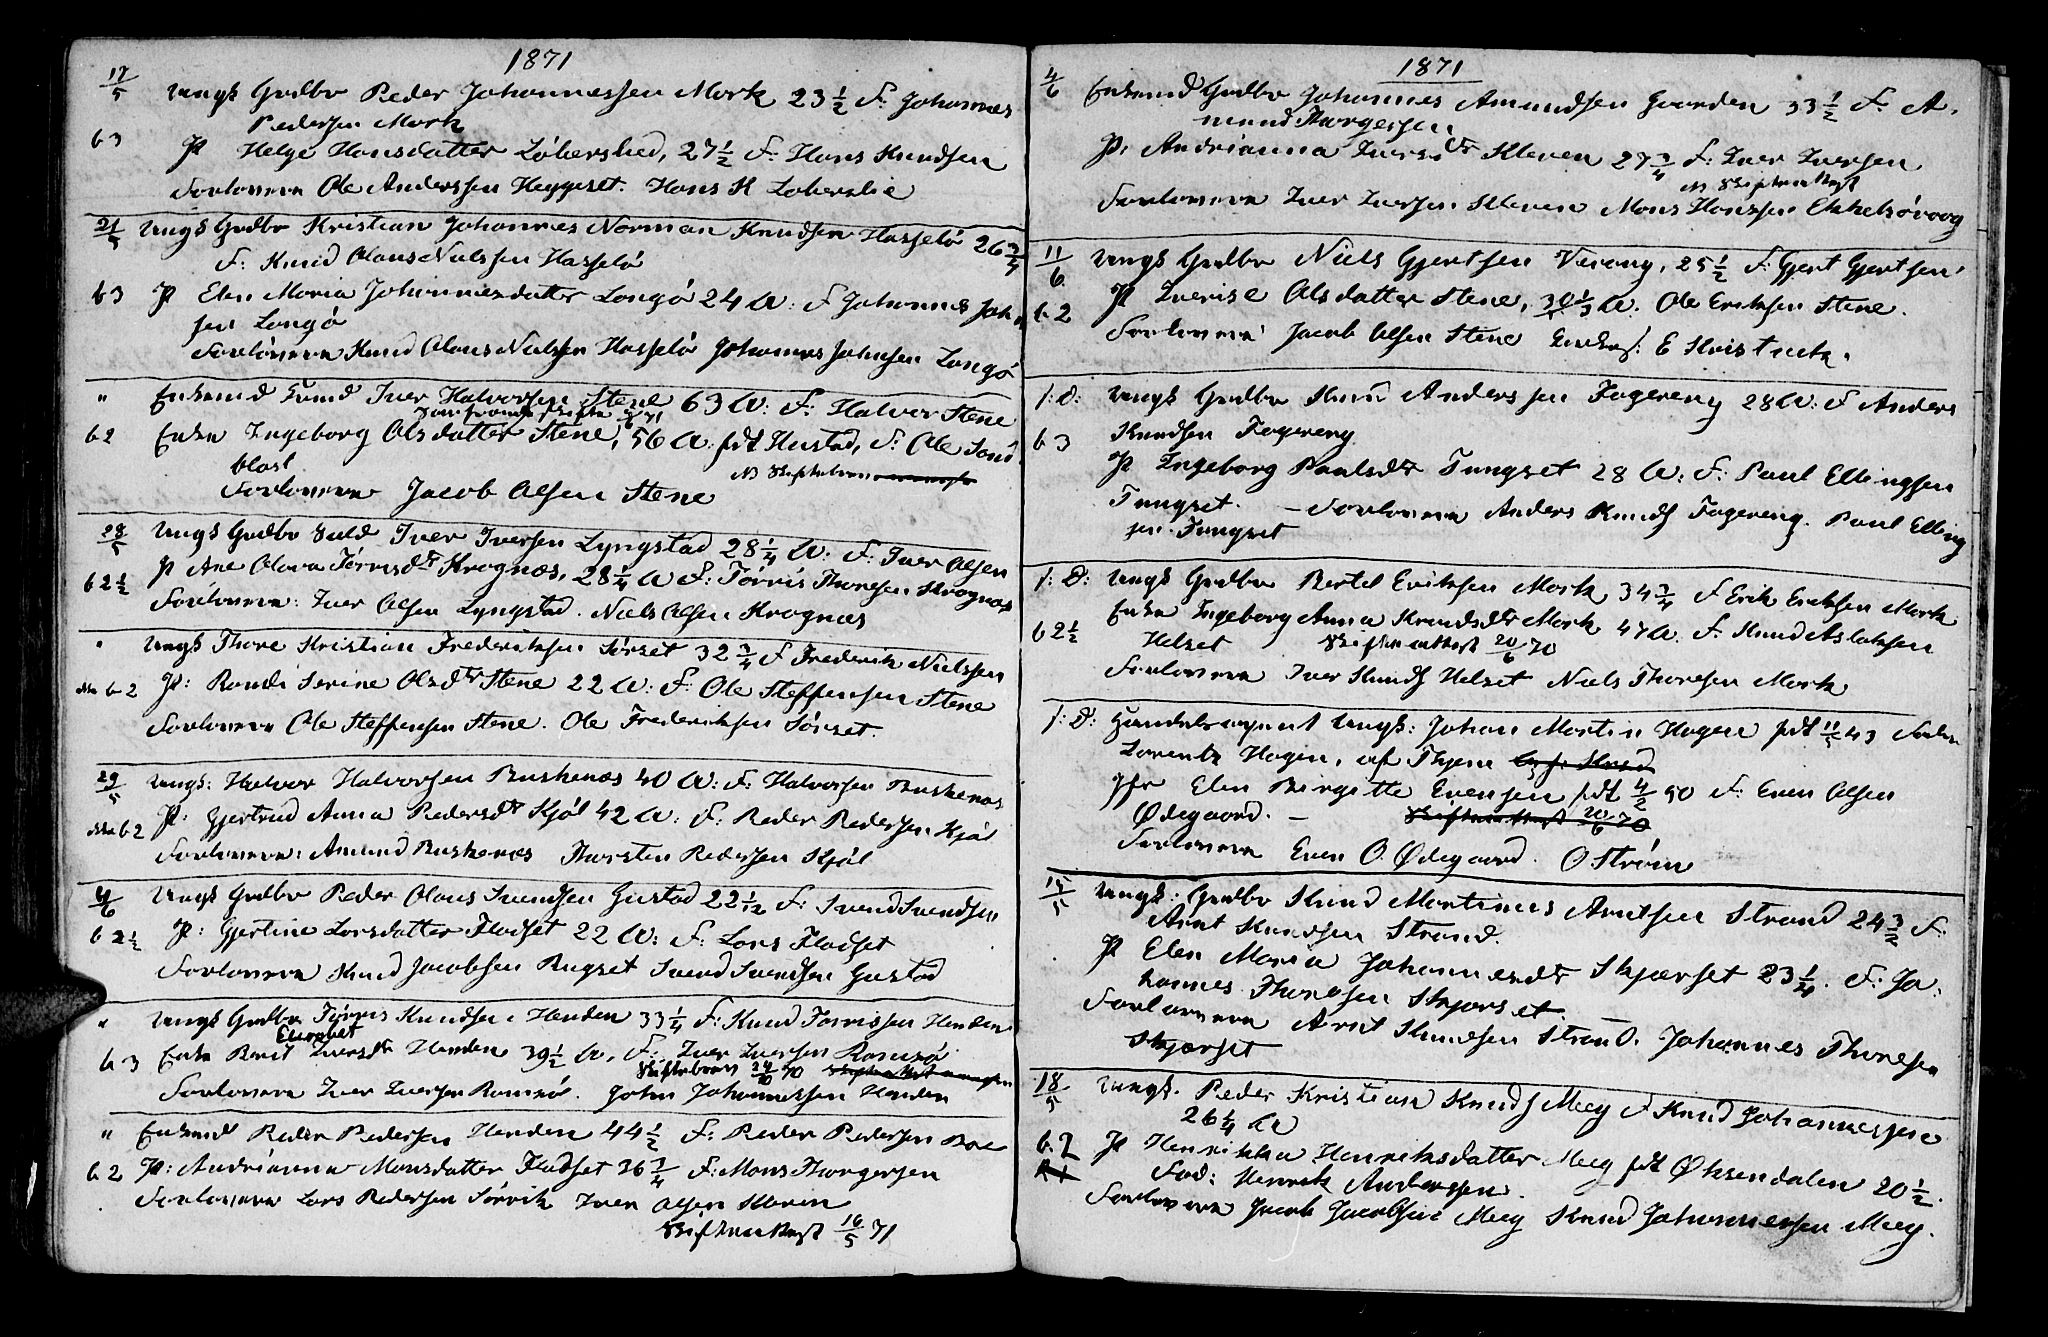 1871
17/5 Ungk Gudbr Peder Johannessen Mork 23 1/2 F: Johannes
Pedersen Mork
b 3 P Helge Hansdatter Løberslied, 27 1/2 F: Hans Knudsen
Forlovere Ole Anderssen Heggeset. Hans K Løberslie
21/5 Ungk Gudbr Kristian Johannes Norman Knudsen Hasselø 26 3/4
F: Knud Olaus Nielsen Hasselø
b 3 P Elen Maria Johannesdatter Langø 24 A: F Johannes John
sen Langø
Forlovere Knud Olaus Nielsen Hasselø Johannes Johnsen Langø
" Enkemd Iver Halvorsen Stene 63 A: F: Halvor Stene
b 2 Enke Ingeborg Olsdatter Stene, 56 A. født Hustad, F: Ole
Forlovere Jacob Olsen Stene
28/5 Ungk Gudbr Iver Iversen Lyngstad 28 1/4 A: F: Iver Olsen
b 2 1/2 P Ane Olava Tørrisdtr Krognæs, 28 1/4 A F: Tørris Thoresen Krognæs
Forlovere: Iver Olsen Lyngstad. Niels Olsen Krognæs
" Ungk Thore Kristian Frederiksen Sørset 32 3/4 F Frederik Nielssen
b 2 P: Randi Serine Olsdtr Stene 22 A: F: Ole Steffensen Stene
Forlovere Ole Steffensen Stene. Ole Frederiksen Sørset.
29/5 Ungk: Halvor Halvorsen Buskenæs 40 A: F: Halvorsen Buskenæs
b 2 P: Gjertrud Anna Pedersdtr Kjøl 42 A: F: Peder Pedersen Kjøl
Forlovere: Amund Buskenæs Thorsten Pedersen Kjøl
4/6 Ungk Gudbr Peder Olaus Svendsen Gustad 22 1/12 F: Svend Svendsen
b 2 1/2 P: Gjertine Larsdatter Fladset 22 A: F: Lars Fladset
Forlovere Knud Jacobsen Rugset Svend Svendsen Gustad
" Ungk Gudbr Tørris Knudsen Henden 33 1/4 F: Knud Tørrissen Henden
Elisabet
b 3 Enke Berit Iversdtr Henden 39 1/2 A, F: Iver Iversen Ramsø
Forlovere Iver Iversen Ramsø. John Johannessen Henden
" Enkemd Peder Pedersen Henden 44 1/2 F: Peder Pedersen Boe
b 2 P: Andrianna Monsdatter Fladset 36 3/4 F: Mons Thorgersen
Forlovere Lars Pedersen Sørvik Iver Olsen Haven
Skifteattest 16/5 71
1871
4/6 Enkemd Gudbr Johannes Amundsen Gaarden 33 1/2 F: A-
mund Thorgersen
P: Andrianna Iversdtr Kleven 27 3/4 F: Iver Iversen
NB Skifteattest
Forlovere Iver Iversen Kleven Mons Hanssen Ekkelsøvaag
11/6 Ungk Gudbr Niels Gjertsen Verang, 25 1/2 F: Gjert Gjertsen
b 2 P Iverise Olsdatter Stene, 30 1/3 A: Ole Eriksen Stene.
Forlovere: Jacob Olsen Stene E Kvisvik.
s: D: Ungk Gudbr Knud Anderssen Fagereng 28 A: F Anders
b 3 Knudsen Fagereng
P Ingeborg Paulsdtr Tungset 28 A: F: Paul Ellingsen
Tungset. - Forlovere Anders Knuds Fagereng. Paul Elling
sen Tungset
s: D: Ungk Gudbr Bertel Eriksen Mork 34 3/4 F Erik Eriksen Mork
b 2 1/2 Enke Ingeborg Anna Knudsdtr Mork 47 A. F: Knud Aslaksen
Helset Skifteattest 20/6 70
Forlovere Iver Knuds Helset Niels Thoresen Mork
s: D: Handelsagent Ungk: Johan Martin Hagen født 11/5 43 Fader
Lorentz Hagen, af
Jfr Elen Birgitte Evensen født 4/2 50 F: Even Olsen
Ødegaard. - Skifteattest 20/6 70
Forlovere Even O. Ødegaard. O. Strøm
15/5 Ungk: Gudbr Knud Martinus Arntsen Strand 24 3/2 F:
Arnt Knudsen Strand.
P Elen Maria Johannesdtr Skjærset 23 1/4. F: Jo-
hannes Thoresen Skjærset.
Forlovere Arnt Knudsen Strand. Johannes Thoresen
Skjærset
18/5 Ungk. Peder Kristian Knuds Meeg F Knud Johannessen
26 1/4 A
b. 2 P Henrikka Henriksdatter Meeg født Øksendalen 20 1/2.
Fad: Henrik Anderssen.
Forlovere Jacob Jacobsen Meeg Knud Johannessen Meeg.